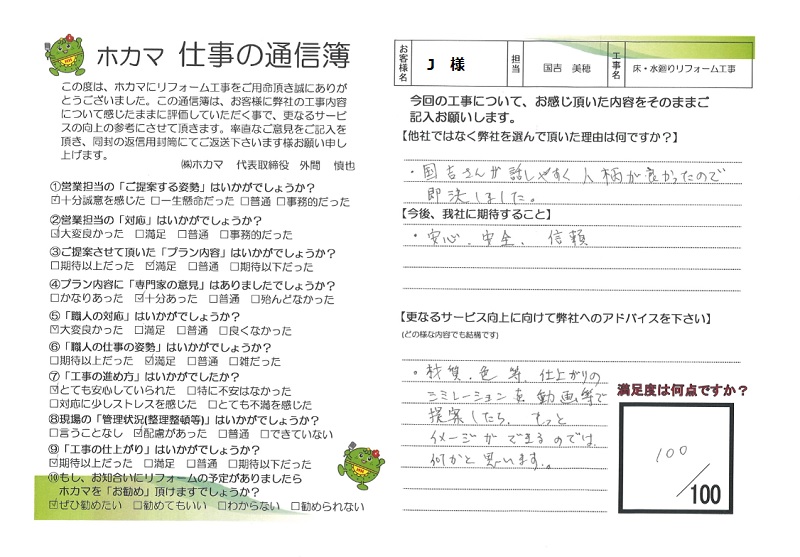 ホカマ 仕事の通信簿
この度は、ホカマにリフォーム工事をご用命頂き誠にありが
とうございました。この通信簿は、お客様に弊社の工事内容
について感じたままに評価していただく事で、更なるサービ
スの向上の参考にさせて頂きます。率直なご意見をご記入を
頂き、同封の返信用封筒にてご返送下さいます様お願い申し
上げます。
㈱ホカマ 代表取締役 外間 慎也
①営業担当の「ご提案する姿勢」はいかがでしょうか?
☑十分誠意を感じた □一生懸命だった □普通 □事務的だった
②営業担当の「対応」はいかがでしょうか?
☑大変良かった □満足 □普通 □事務的だった
③ご提案させて頂いた「プラン内容」はいかがでしょうか?
□期待以上だった ☑満足 □普通 □期待以下だった
④プラン内容に「専門家の意見」はありましたでしょうか?
□かなりあった ☑十分あった □普通 □殆んどなかった
⑤「職人の対応」はいかがでしょうか?
☑大変良かった □満足 □普通 □良くなかった
⑥「職人の仕事の姿勢」はいかがでしょうか?
□期待以上だった ☑満足 □普通 □雑だった
⑦「工事の進め方」はいかがでしたか?
☑とても安心していられた □特に不安はなかった
□対応に少しストレスを感じた □とても不満を感じた
⑧現場の「管理状況(整理整頓等)」はいかがでしょうか?
□言うことなし ☑配慮があった □普通 □できていない
⑨「工事の仕上がり」はいかがでしょうか?
☑期待以上だった □満足 □普通 □期待以下だった
⑩もし、お知合いにリフォームの予定がありましたら
ホカマを「お勧め」頂けますでしょうか?
☑ぜひ勧めたい □勧めてもいい □わからない □勧められない
お客様名 J 様 担当 国吉 美穂 工事名 床・水廻りリフォーム工事
今回の工事について、お感じ頂いた内容をそのままご
記入お願いします。
【他社ではなく弊社を選んで頂いた理由は何ですか?】
・国吉さんが話しやすく人柄が良かったので
即決しました。
【今後、我社に期待すること】
・安心、安全、信頼
【更なるサービス向上に向けて弊社へのアドバイスを下さい】
(どの様な内容でも結構です)
・材質、色等、仕上がりの
シミレーションを動画等で
提案したら、もっと
イメージができるのでは
何かと思います。
満足度は何点ですか?
100
/100